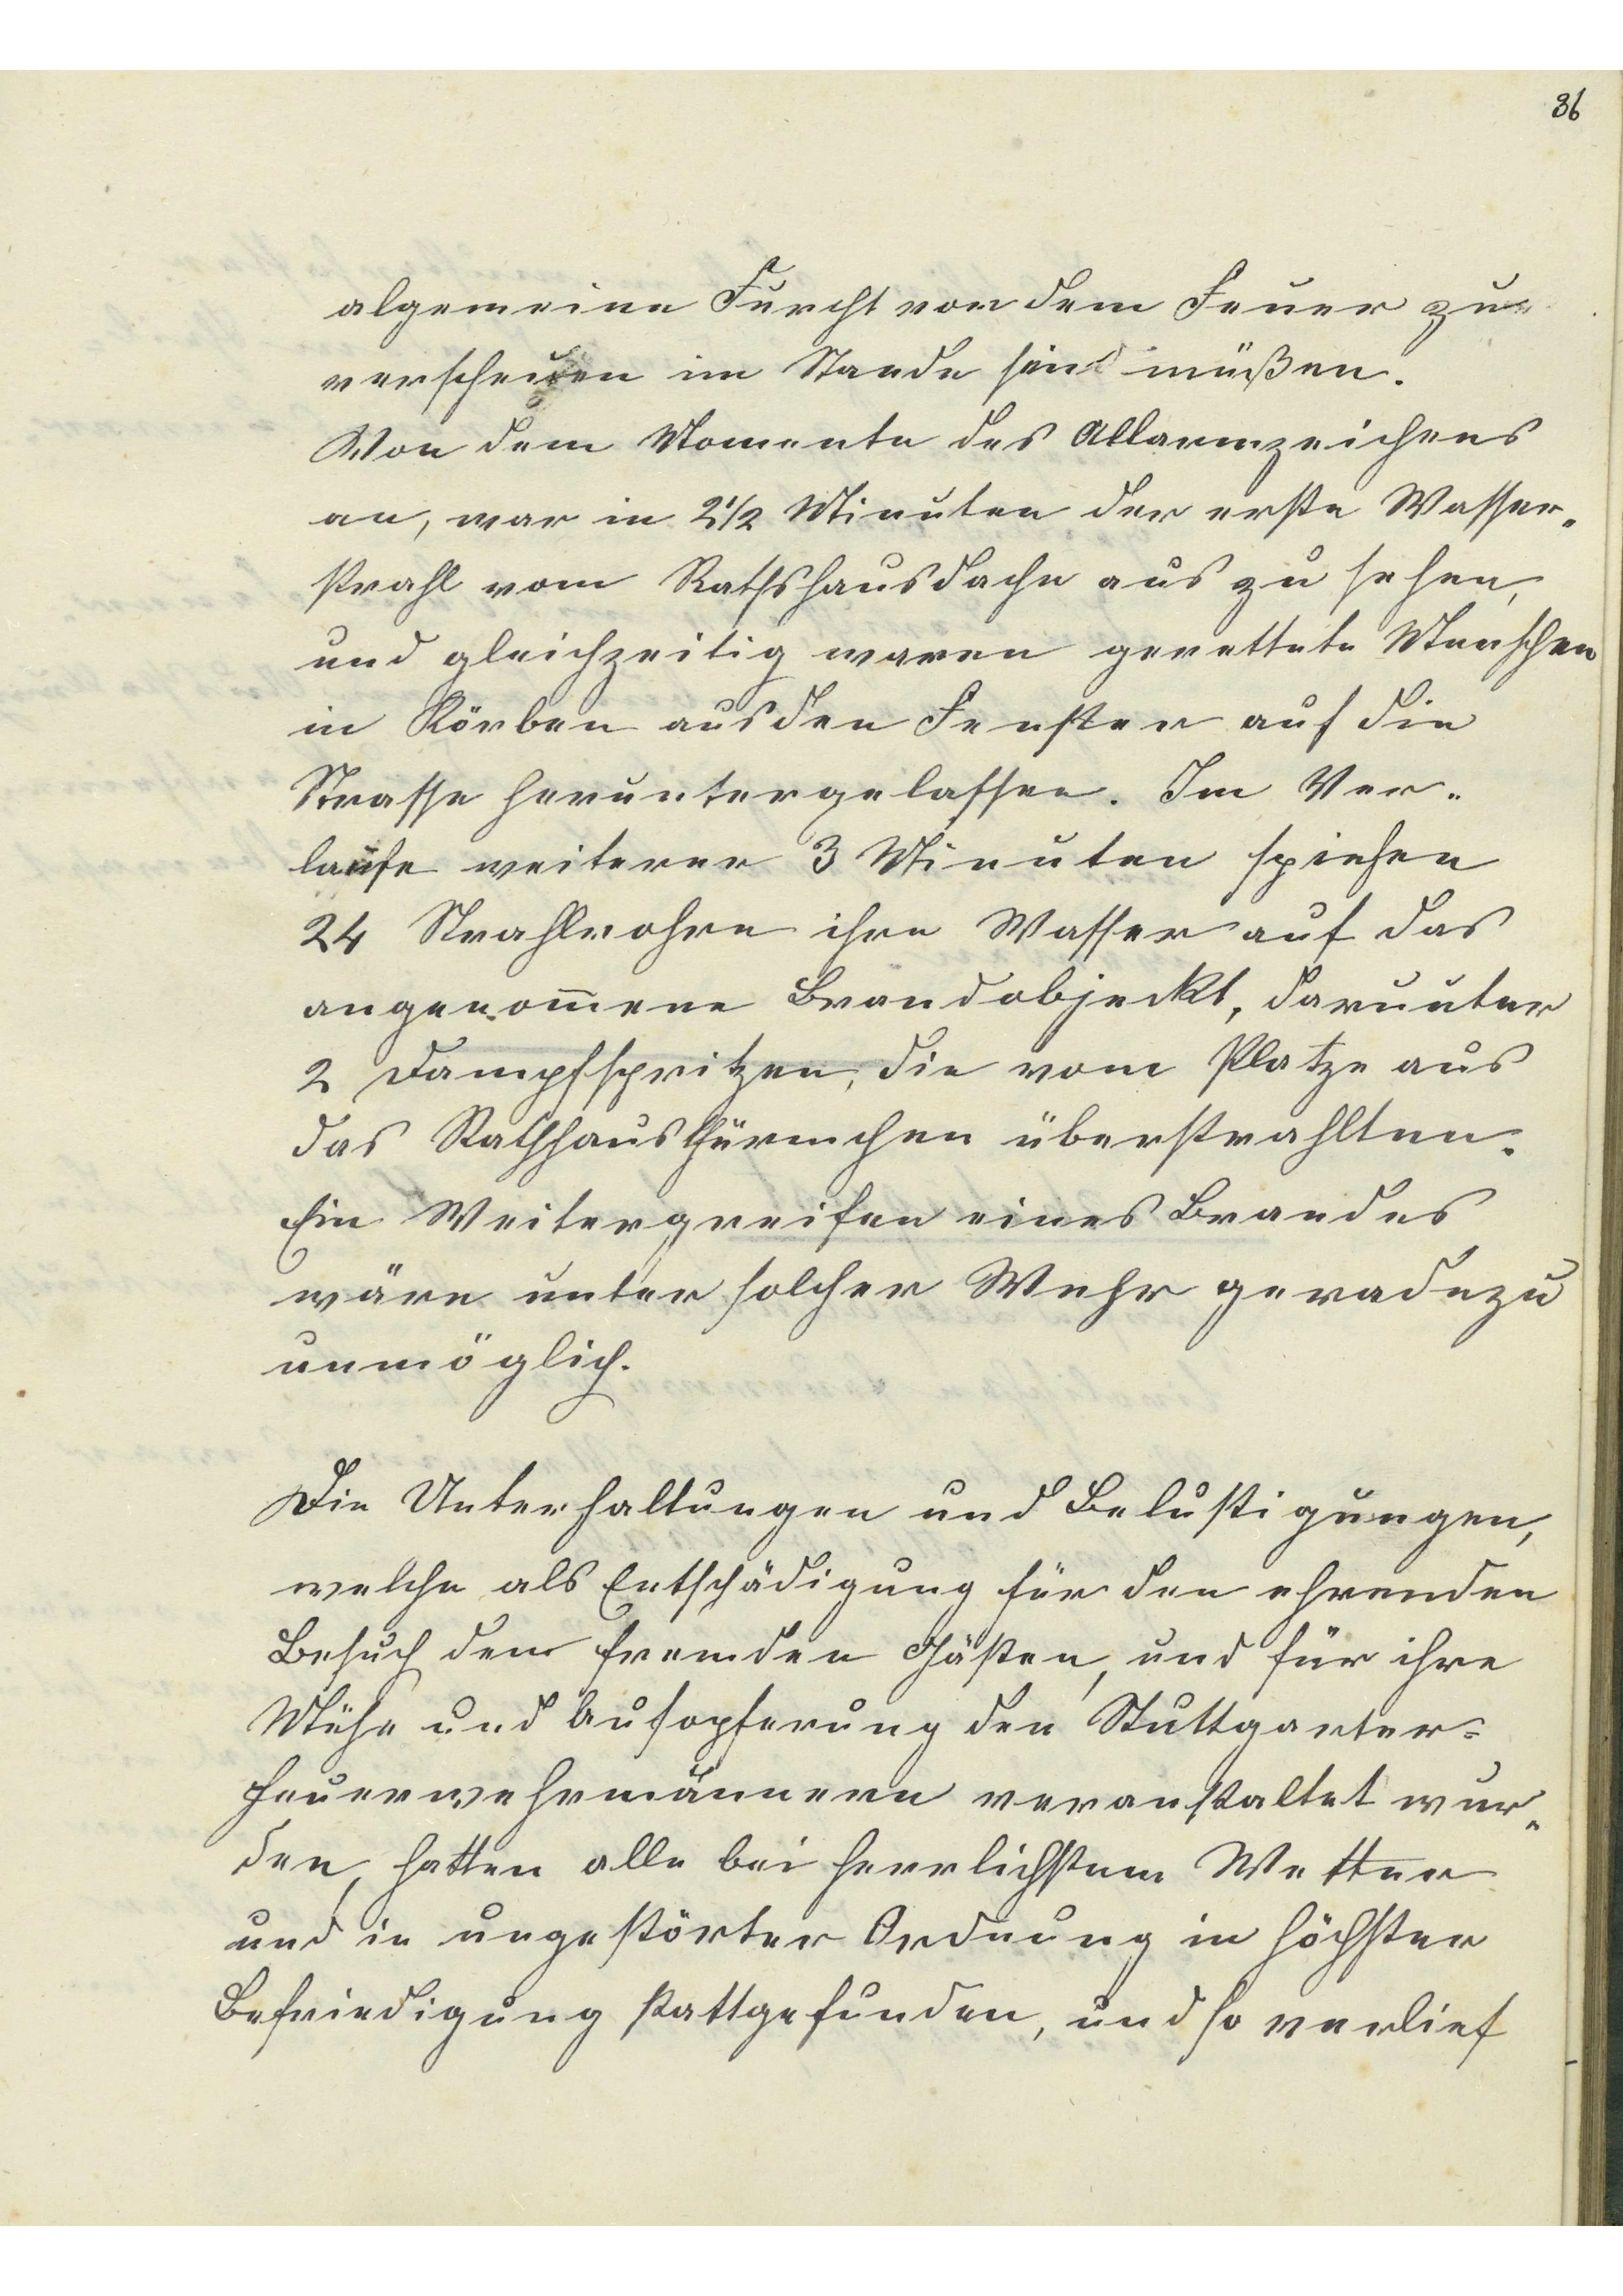 36
algemeine Furcht von dem Feuer zu
verscheuen im Stande sein müßen.
Von dem Momente des Allarmzeichens
an, war in 2 1/2 Minuten der erste Wasser-
strahl vom Rathshausdache aus zu sehen,
und gleichzeitig waren gerettete Menschen
in Körben aus den Fenster auf die
Strasse heruntergelassen. Im Ver-
laufe weiterer 3 Minuten spiehen
24 Strahlrohre ihre Wasser auf das
angenom̄ene Brandobjeckt, darunter
2 Dampfspritzen, die vom Platze aus
das Rathhausthürmchen überstrahlten.
Ein Weitergreifen eines Brandes
wäre unter solcher Wehr geradezu
unmöglich.
Die Unterhaltungen und Belustigungen,
welche als Entschädigung für den ehrenden
Besuch den fremden Gästen, und für ihre
Mühe und Aufopferung den Stuttgarter-
Feuerwehrmännern veranstaltet wur-
den, hatten alle bei herrlichstem Wetter
und in ungestörter Ordnung in höchster
Befriedigung stattgefunden, und so verlief